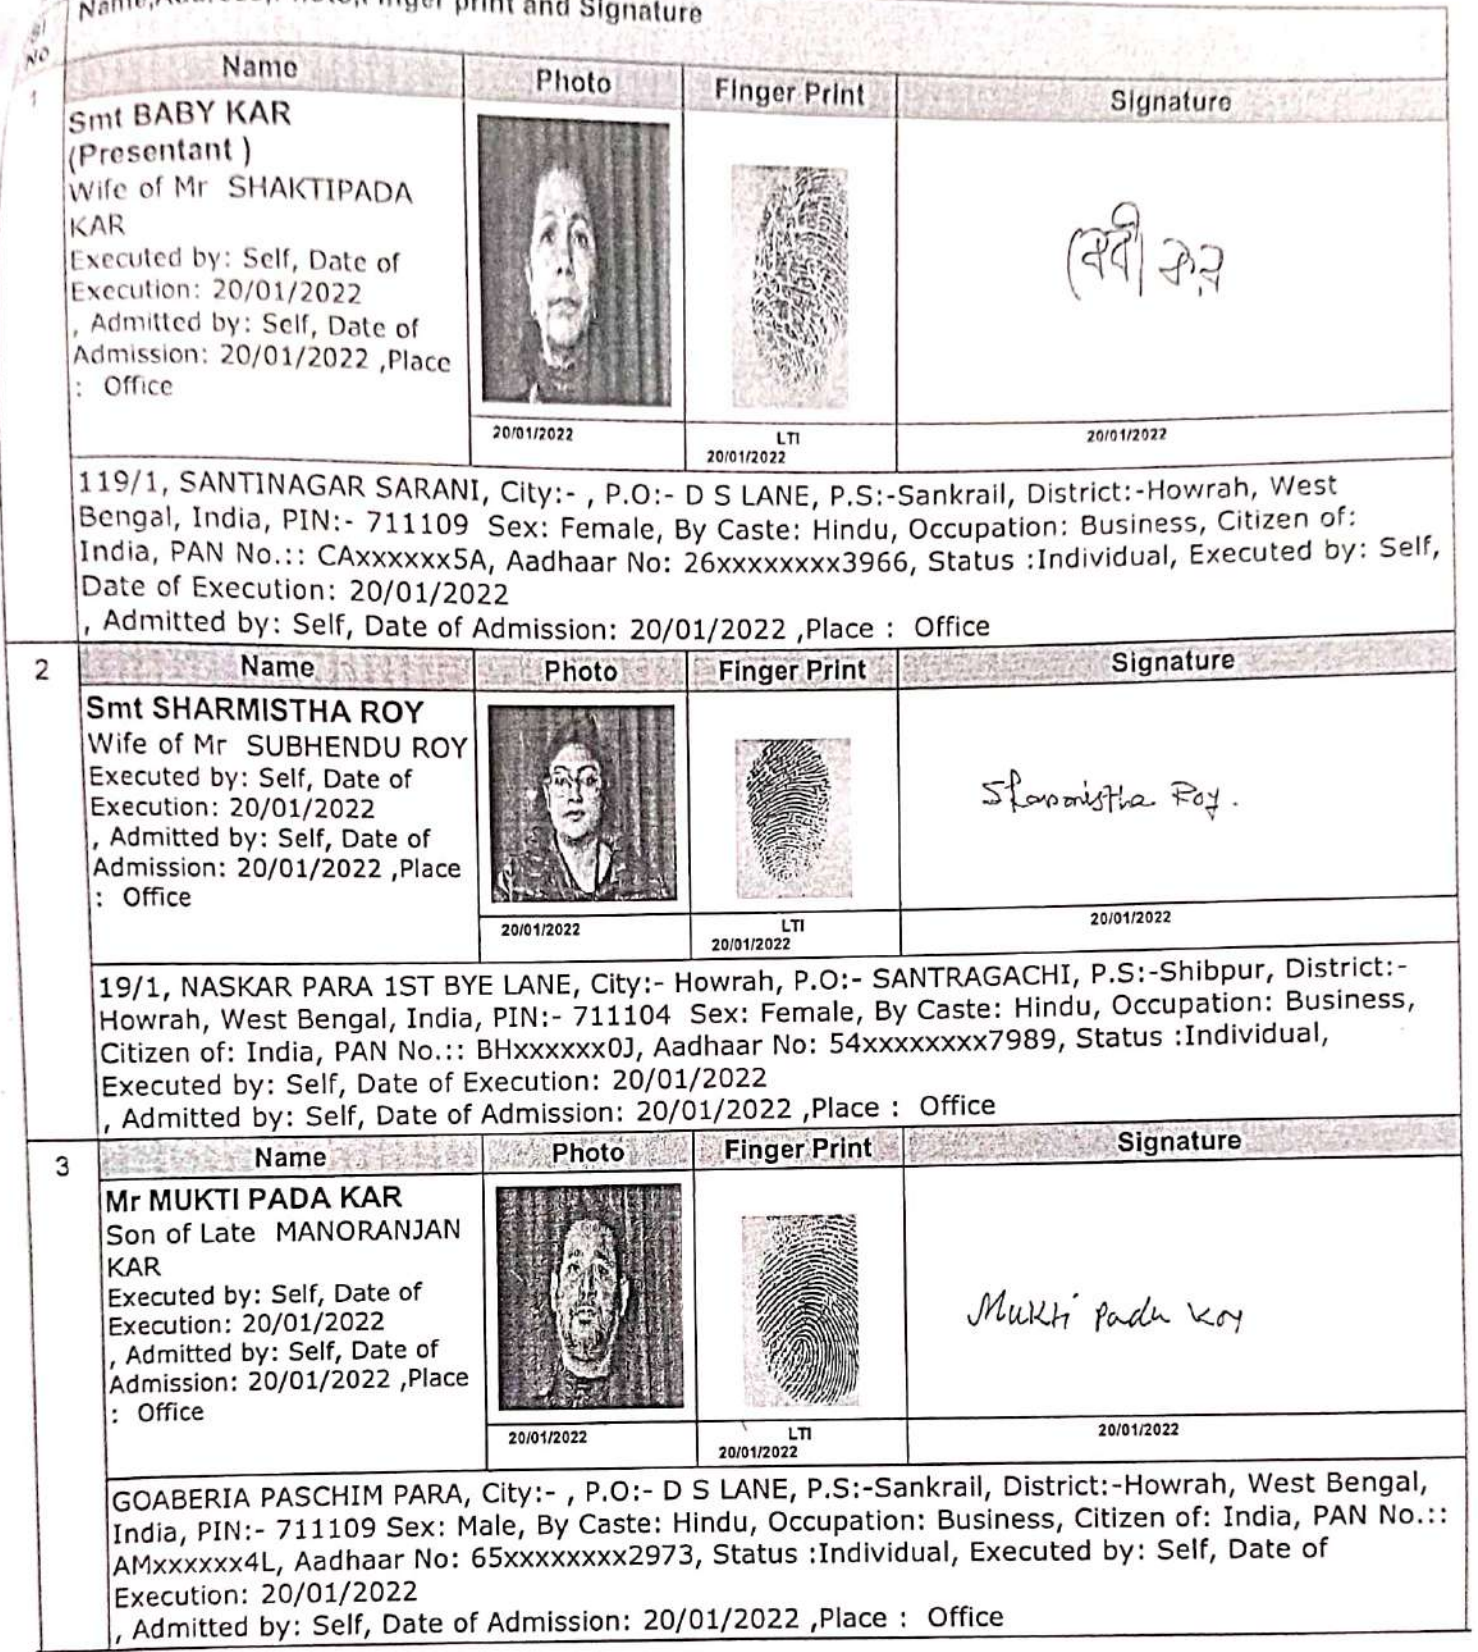 Name, Address, Photo, Finger print and Signature
Sl
No
Name
Photo
Finger Print
Signature
1
Smt BABY KAR
(Presentant )
Wife of Mr SHAKTIPADA
KAR
Executed by: Self, Date of
Execution: 20/01/2022
, Admitted by: Self, Date of
Admission: 20/01/2022 ,Place
: Office
বেবী কর
20/01/2022
LTI
20/01/2022
20/01/2022
119/1, SANTINAGAR SARANI, City:- , P.O:- D S LANE, P.S:-Sankrail, District:-Howrah, West
Bengal, India, PIN:- 711109 Sex: Female, By Caste: Hindu, Occupation: Business, Citizen of:
India, PAN No.:: CAxxxxxx5A, Aadhaar No: 26xxxxxxxx3966, Status :Individual, Executed by: Self,
Date of Execution: 20/01/2022
, Admitted by: Self, Date of Admission: 20/01/2022 ,Place : Office
2
Name
Photo
Finger Print
Signature
Smt SHARMISTHA ROY
Wife of Mr SUBHENDU ROY
Executed by: Self, Date of
Execution: 20/01/2022
, Admitted by: Self, Date of
Admission: 20/01/2022 ,Place
: Office
Sharmistha Roy.
20/01/2022
LTI
20/01/2022
20/01/2022
19/1, NASKAR PARA 1ST BYE LANE, City:- Howrah, P.O:- SANTRAGACHI, P.S:-Shibpur, District:-
Howrah, West Bengal, India, PIN:- 711104 Sex: Female, By Caste: Hindu, Occupation: Business,
Citizen of: India, PAN No.:: BHxxxxxx0J, Aadhaar No: 54xxxxxxxx7989, Status :Individual,
Executed by: Self, Date of Execution: 20/01/2022
, Admitted by: Self, Date of Admission: 20/01/2022 ,Place : Office
3
Name
Photo
Finger Print
Signature
Mr MUKTI PADA KAR
Son of Late MANORANJAN
KAR
Executed by: Self, Date of
Execution: 20/01/2022
, Admitted by: Self, Date of
Admission: 20/01/2022 ,Place
: Office
Mukti Pada Kar
20/01/2022
LTI
20/01/2022
20/01/2022
GOABERIA PASCHIM PARA, City:- , P.O:- D S LANE, P.S:-Sankrail, District:-Howrah, West Bengal,
India, PIN:- 711109 Sex: Male, By Caste: Hindu, Occupation: Business, Citizen of: India, PAN No.::
AMxxxxxx4L, Aadhaar No: 65xxxxxxxx2973, Status :Individual, Executed by: Self, Date of
Execution: 20/01/2022
, Admitted by: Self, Date of Admission: 20/01/2022 ,Place : Office